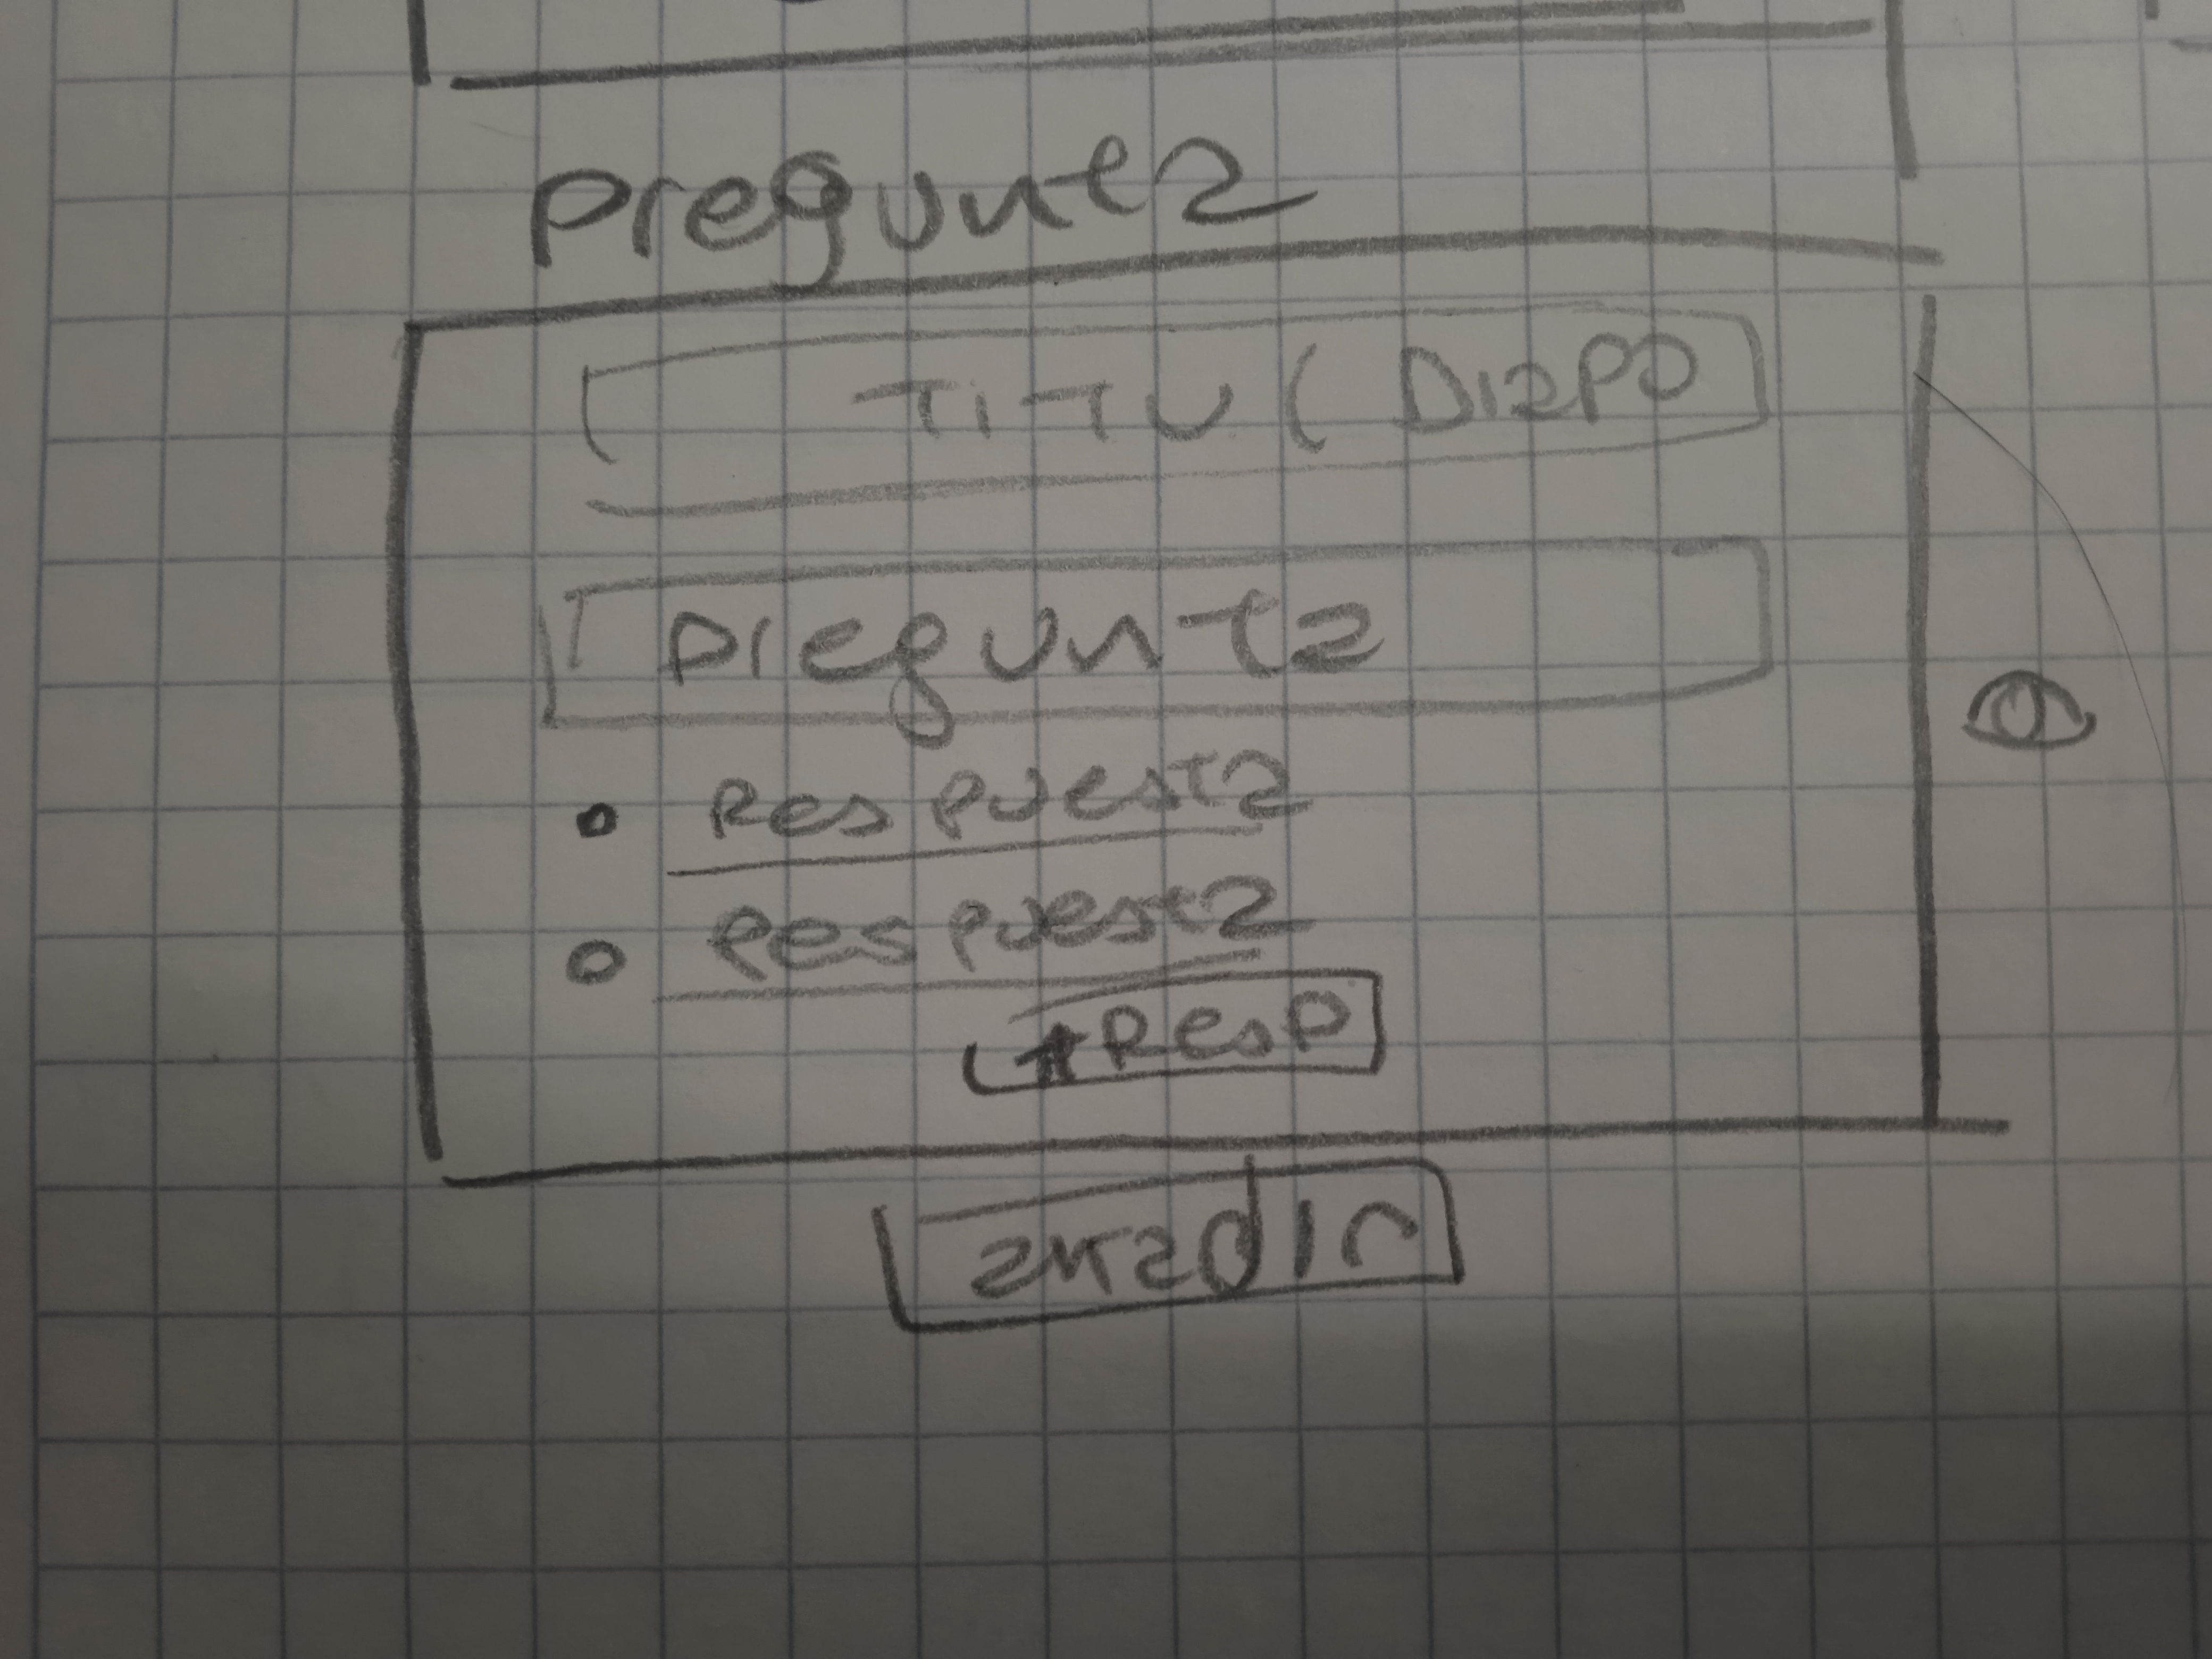 Pregunta
TiTU( DiapO
Pregunta
Respuesta
Respuesta
+Resp
añadir